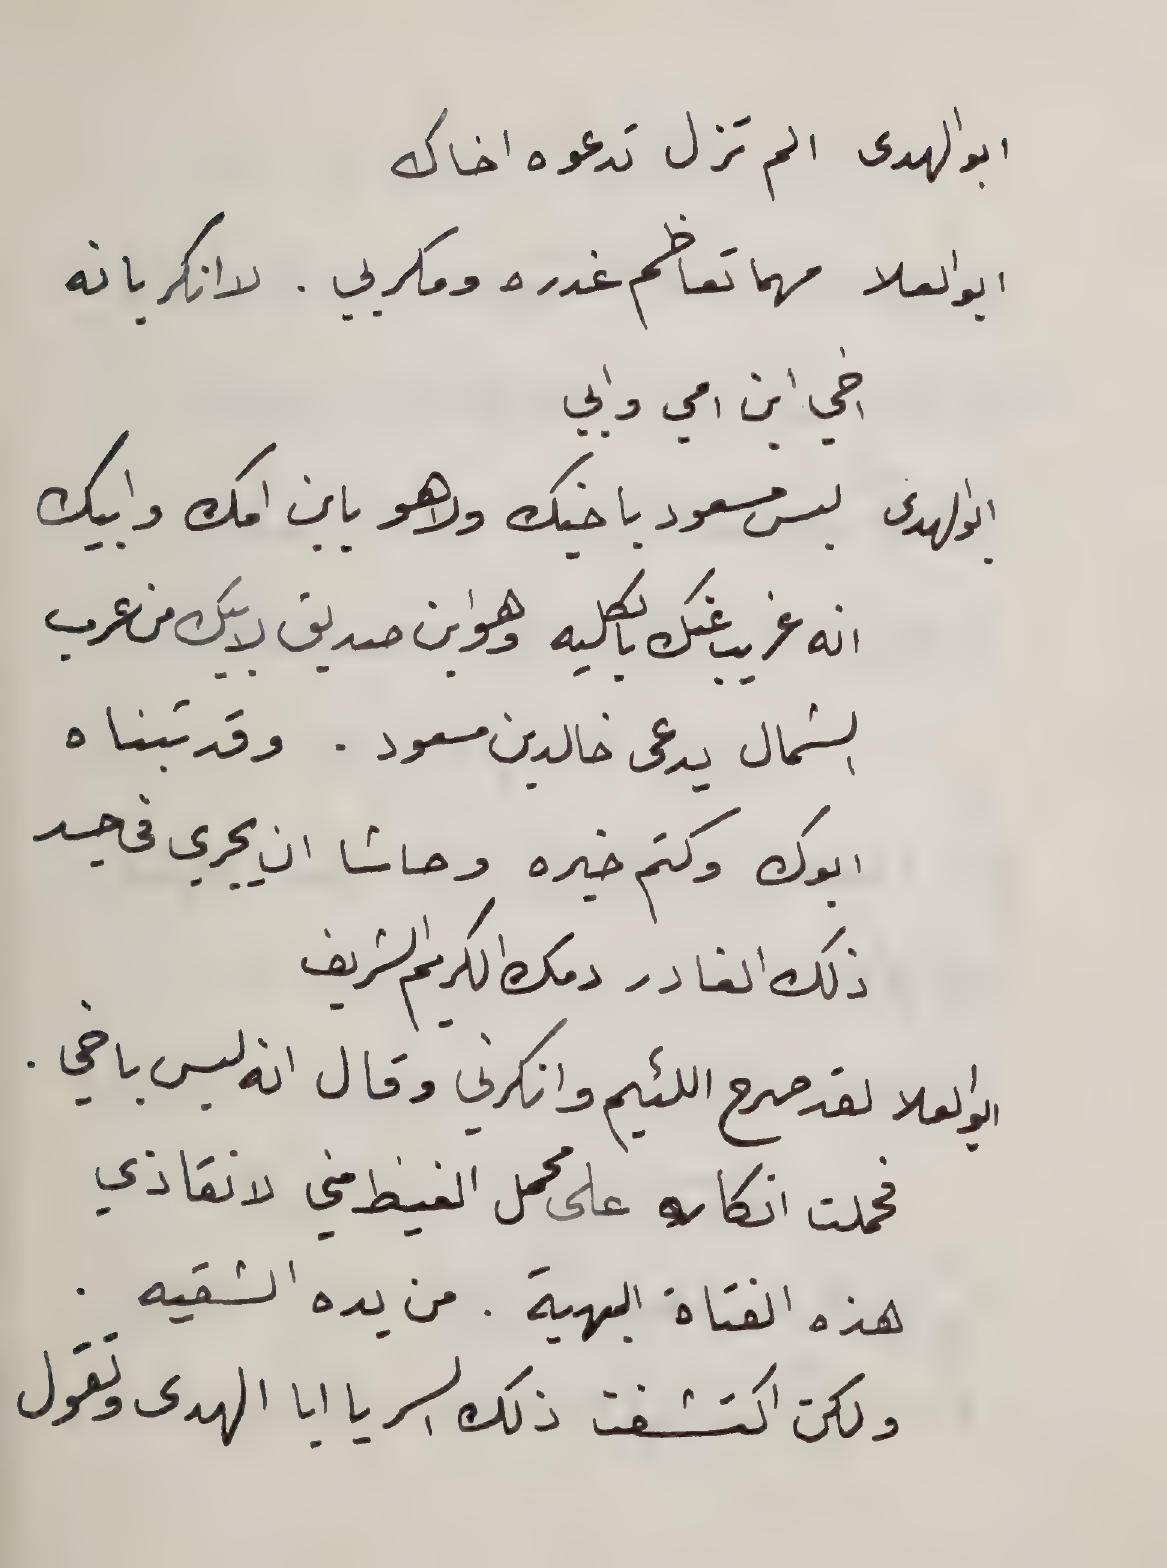 ابوالهدى الم تزل تدعوه اخاك
ابوالعلا مهما تعاظم غدره ومكر بي . لا انكر بانه
اخي ابن امي وابي
ابوالهدى ليس مسعود باخيك ولا هو بابن امك وابيك
انه غريب عنك بالكليه وهو ابن صديق لابيك من عرب
الشمال يدعى خالد بن مسعود . وقد تبناه
ابوك وكتم خبره وحاشا ان يجري في جسد
ذلك الغادر دمك الكريم الشريف
ابوالعلا لقد صرح اللئيم وانكرني وقال انه ليس باخي .
فحملت انكاره على محمل الغيظ مني لانقاذي
هذه الفتاة البهية . من يده الشقيه .
ولكن اكتشفت ذلك السر يا ابا الهدى وتقول